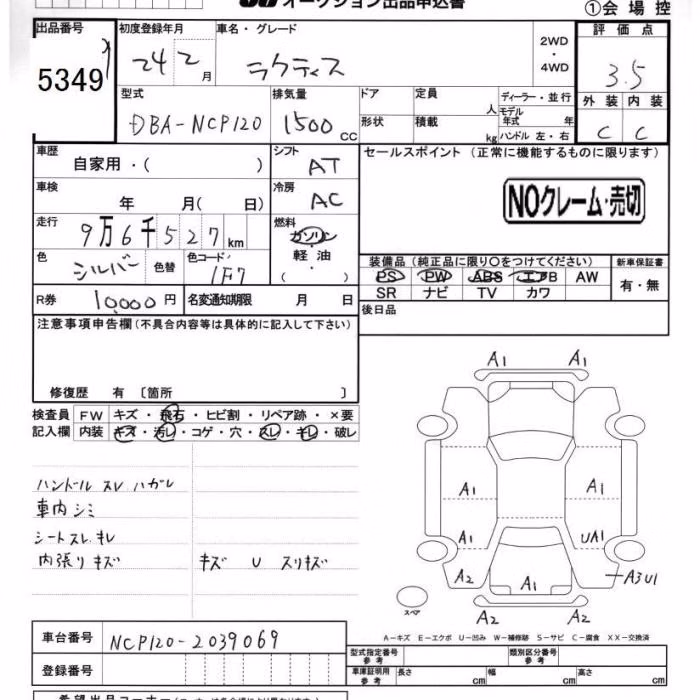 オークション出品申込書
①会場控
出品番号
5349
初度登録年月
24 2月
車名・グレード
ラクティス
2WD
・
4WD
評価点
3.5
外装 内装
C C
型式
DBA-NCP120
排気量
1500cc
ドア
定員
人
形状
積載
kg
ディーラー・並行
モデル年式 年
ハンドル 左・右
車歴
自家用・( )
シフト
AT
セールスポイント (正常に機能するものに限ります)
NOクレーム・売切
車検
年 月( 日)
冷房
AC
走行
9万6千527km
燃料
ガソリン
・
軽油
( )
色
シルバー
色替
色コード
1F7
装備品(純正品に限り○をつけてください)
新車保証書
PS PW ABS エアB AW
SR ナビ TV カワ
有・無
R券 10,000円
名変通知期限 月 日
後日品
注意事項申告欄(不具合内容等は具体的に記入して下さい)
修復歴 有 〔箇所 〕
検査員記入欄
FW キズ・飛石・ヒビ割・リペア跡・×要
内装 キズ・汚レ・コゲ・穴・スレ・キレ・破レ
ハンドル スレ ハガレ
車内 シミ
シート スレ キレ
内張り キズ
キズ U スリキズ
A1 A1
A1 A1
A1 UA1
A2 A1 A3U1
A2 A2
スペア
A-キズ E-エクボ U-凹み W-補修跡 S-サビ C-腐食 XX-交換済
車台番号
NCP120-2039069
登録番号
型式指定番号
参考
類別区分番号
参考
車庫証明用
参考
長さ cm
幅 cm
高さ cm
希望出品コーナー